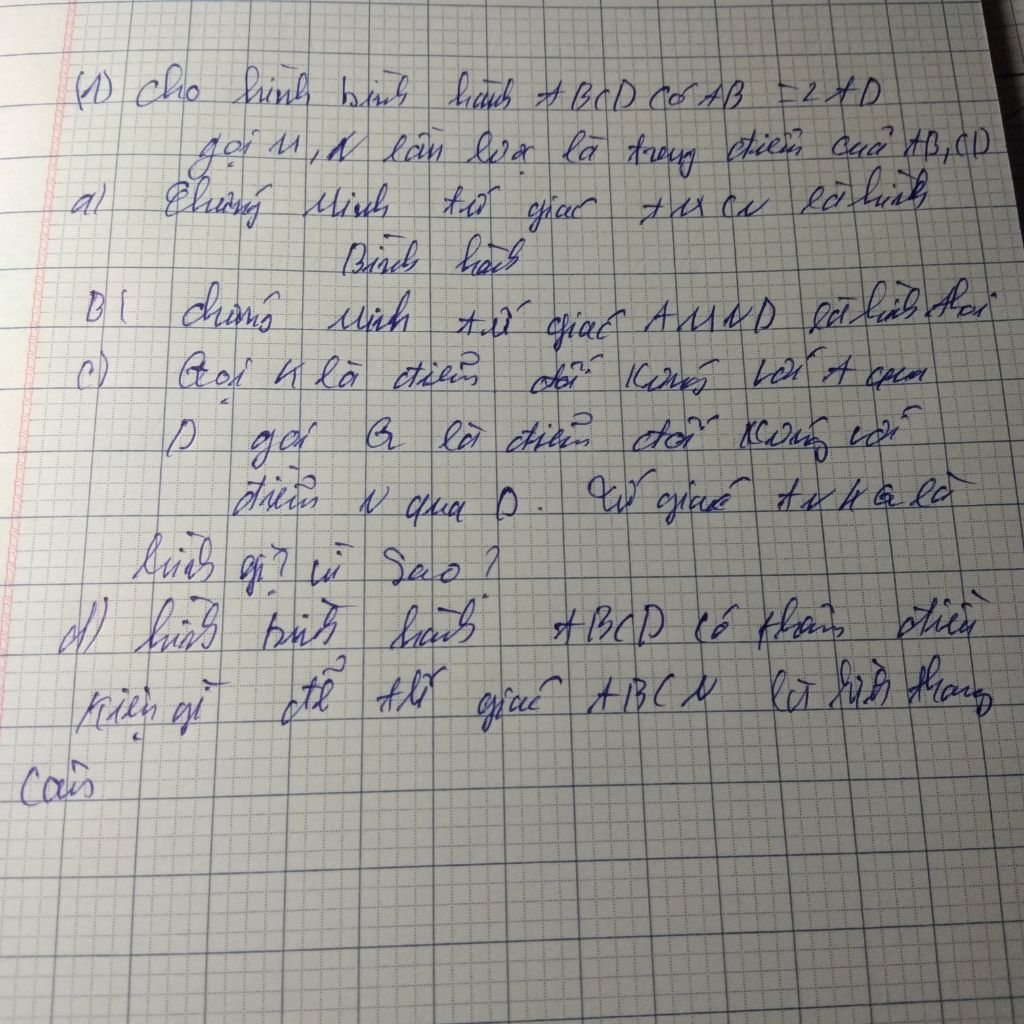 (1) Cho hình bình hành ABCD có AB = 2 AD
gọi M, N lần lượt là trung điểm của AB, CD
a) Chứng Minh tứ giác AMCN là hình
Bình hành
B( chứng Minh tứ giác AMND là hình thoi
c) Gọi K là điểm đối xứng với A qua
D gọi Q là điểm đối xứng với
điểm N qua D. Tứ giác ANKQ là
hình gì? vì Sao?
d) hình bình hành ABCD có thêm điều
kiện gì để tứ giác ABCN là hình thang
Cân